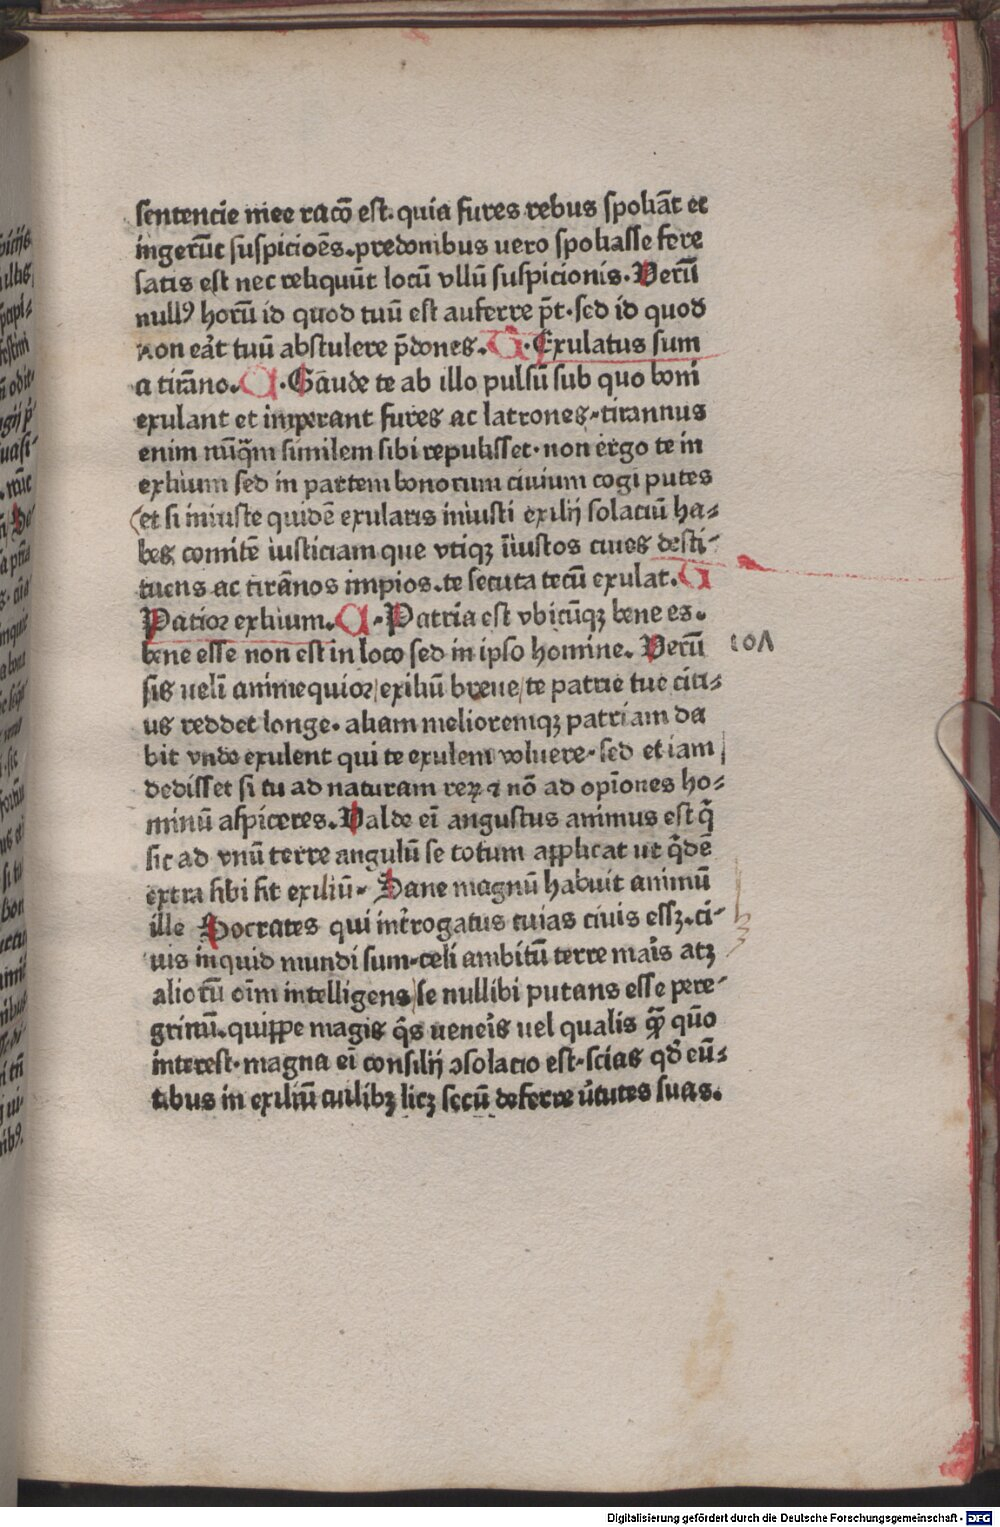 sentencie mee racōē est. quia fures rebus spoliāt et
ingerūt suspicioēs. predonibus uero spoliasse fere
satis est nec relinquūt locū vllū suspicionis. Verū
nullꝰ horū id quod tuū est auferre p̄t. sed id quod
non eāt tuū abstulere p̄dones. Exulatus sum
a tirāno. Gaude te ab illo pulsū sub quo boni
exulant et imperant fures ac latrones. tirannus
enim nūq̄m similem sibi repulisset. non ergo te in
exilium sed in partem bonorum ciuium cogi putes
et si iniuste quidē exularis iniusti exilij solaciū ha-
bes comitē iusticiam que vtiqꝫ īiustos ciues desti-
tuens ac tirānos impios. te secuta tecū exulat.
Patior exilium. Patria est vbicūqꝫ bene es.
bene esse non est in loco sed in ipso homine. Verū
sis uelī anime quior exiliū breue te patrie tue citi-
us reddet longe. aliam melioremqꝫ patriam da
bit vnde exulent qui te exulem voluere. sed et iam
dedisset si tu ad naturam reꝝ ⁊ nō ad opīones ho-
minū aspiceres. Valde eī angustus animus est q̄
sic ad vnū terre angulū se totum applicat ut q̄dē
extra sibi sit exiliū. Sane magnū habuit animū
ille Socrates qui int̄rogatus cuias ciuis essꝫ. ci-
uis inquid mundi sum. celi ambitū terre maīs atꝫ
alioꝛū oīm intelligens se nullibi putans esse pere-
grinū. quippe magis q̄s ueneīs uel qualis ꝙ̄ quō
interest. magna eī consilij ↄsolacio est. scias qđ eū-
tibus in exiliū cuilibꝫ licꝫ secū deferre ūtutes suas.
Digitalisierung gefördert durch die Deutsche Forschungsgemeinschaft - DFG